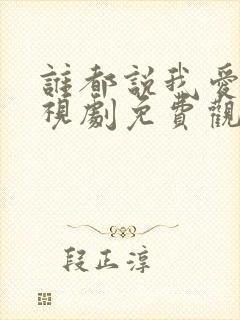 誰都說我愛
視劇免費觀
段正淳